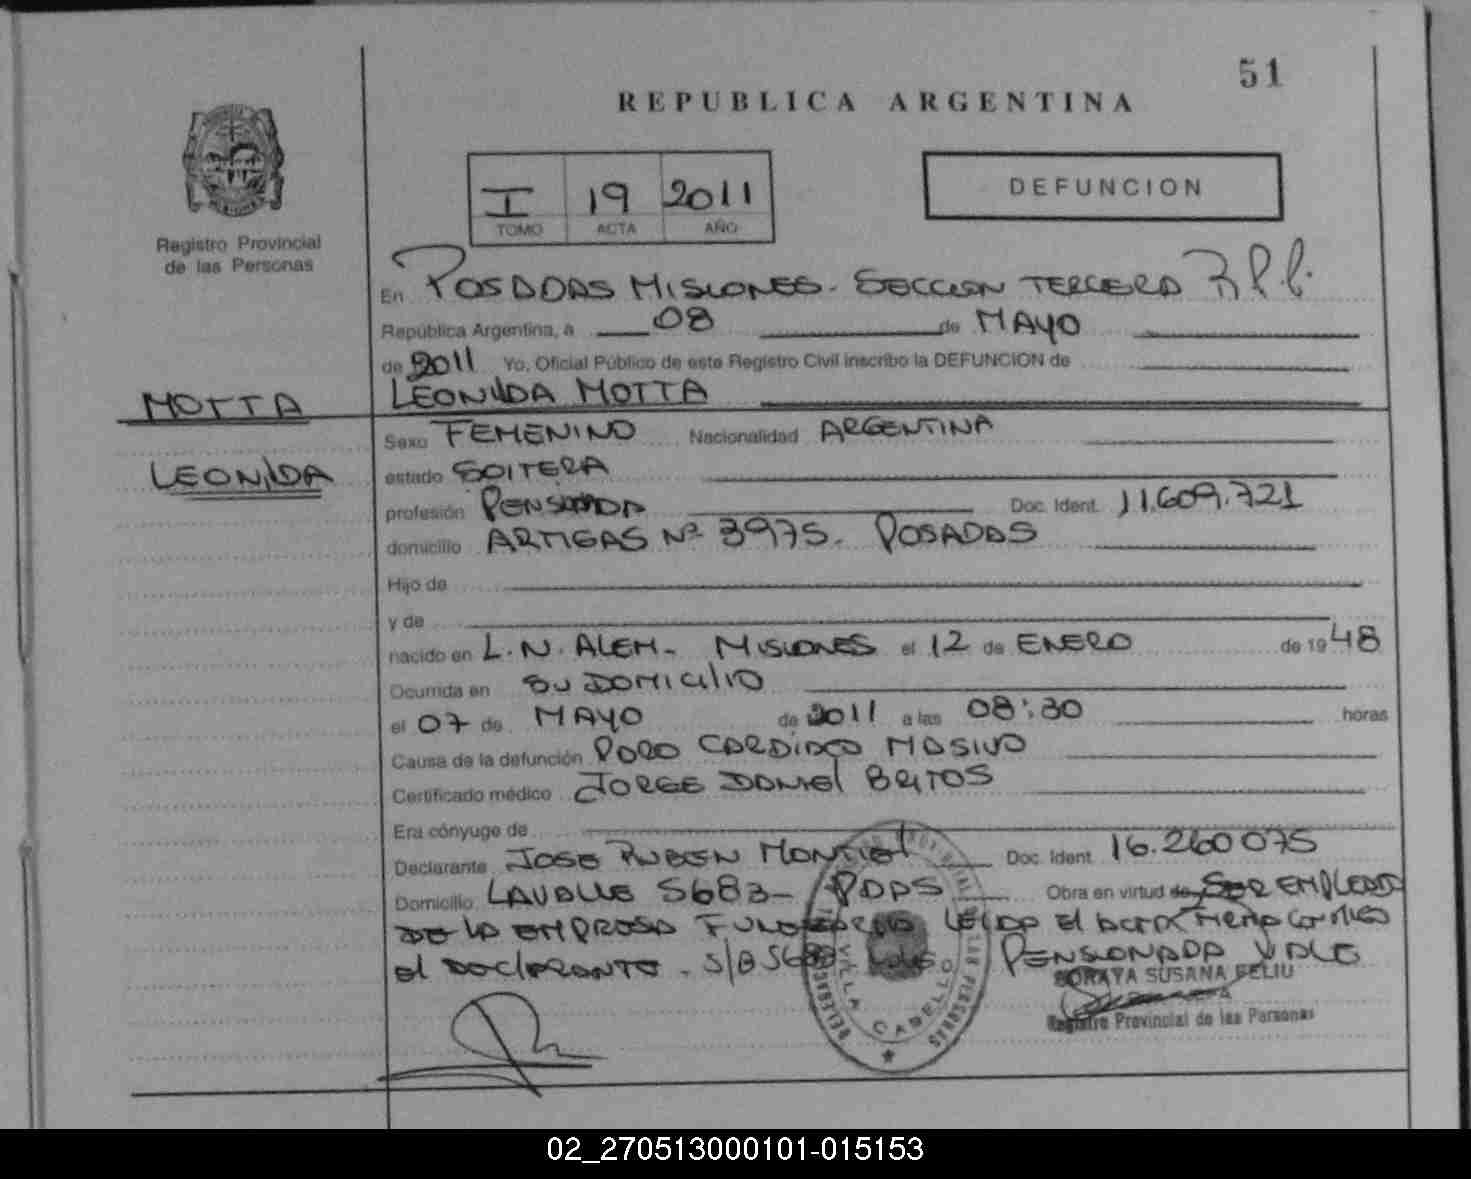 51
REPUBLICA ARGENTINA
I 19 2011
TOMO ACTA AÑO
DEFUNCION
Registro Provincial
de las Personas
En POSADAS MISIONES. SECCION TERCERA
República Argentina, a 08 de MAYO
de 2011 Yo, Oficial Público de este Registro Civil inscribo la DEFUNCION de
MOTTA
LEONILDA MOTTA
Sexo FEMENINO Nacionalidad ARGENTINA
LEONILDA
estado SOLTERA
profesión PENSIONADA Doc. Ident. 11.609.721
domicilio ARTIGAS Nº 3975. POSADAS
Hijo de
y de
nacido en L.N. ALEM - MISIONES el 12 de ENERO de 1948
Ocurrida en SU DOMICILIO
el 07 de MAYO de 2011 a las 08:30 horas
Causa de la defunción PARO CARDIACO MASIVO
Certificado médico JORGE DANIEL BRITOS
Era cónyuge de
Declarante JOSE RUBEN MONTIEL Doc. Ident. 16.260075
Domicilio LAVALLE 5683 - PDAS Obra en virtud de SER EMPLEADO
DE LA EMPRESA FUNERARIA LEIDA El ACTA FIRMA CONMIGO
el DECLARANTE. S/B 5683 Vale PENSIONADA VALE
SORAYA SUSANA FELIU
Registro Provincial de las Personas
VILLA CABELLO
02_270513000101-015153